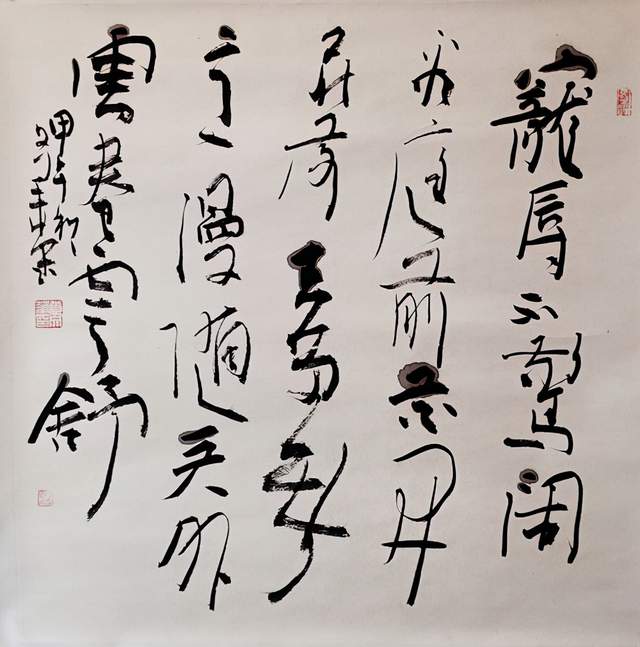 寵辱不驚閑
看庭前花開
花落去留無
意漫隨天外
雲卷雲舒
甲午初